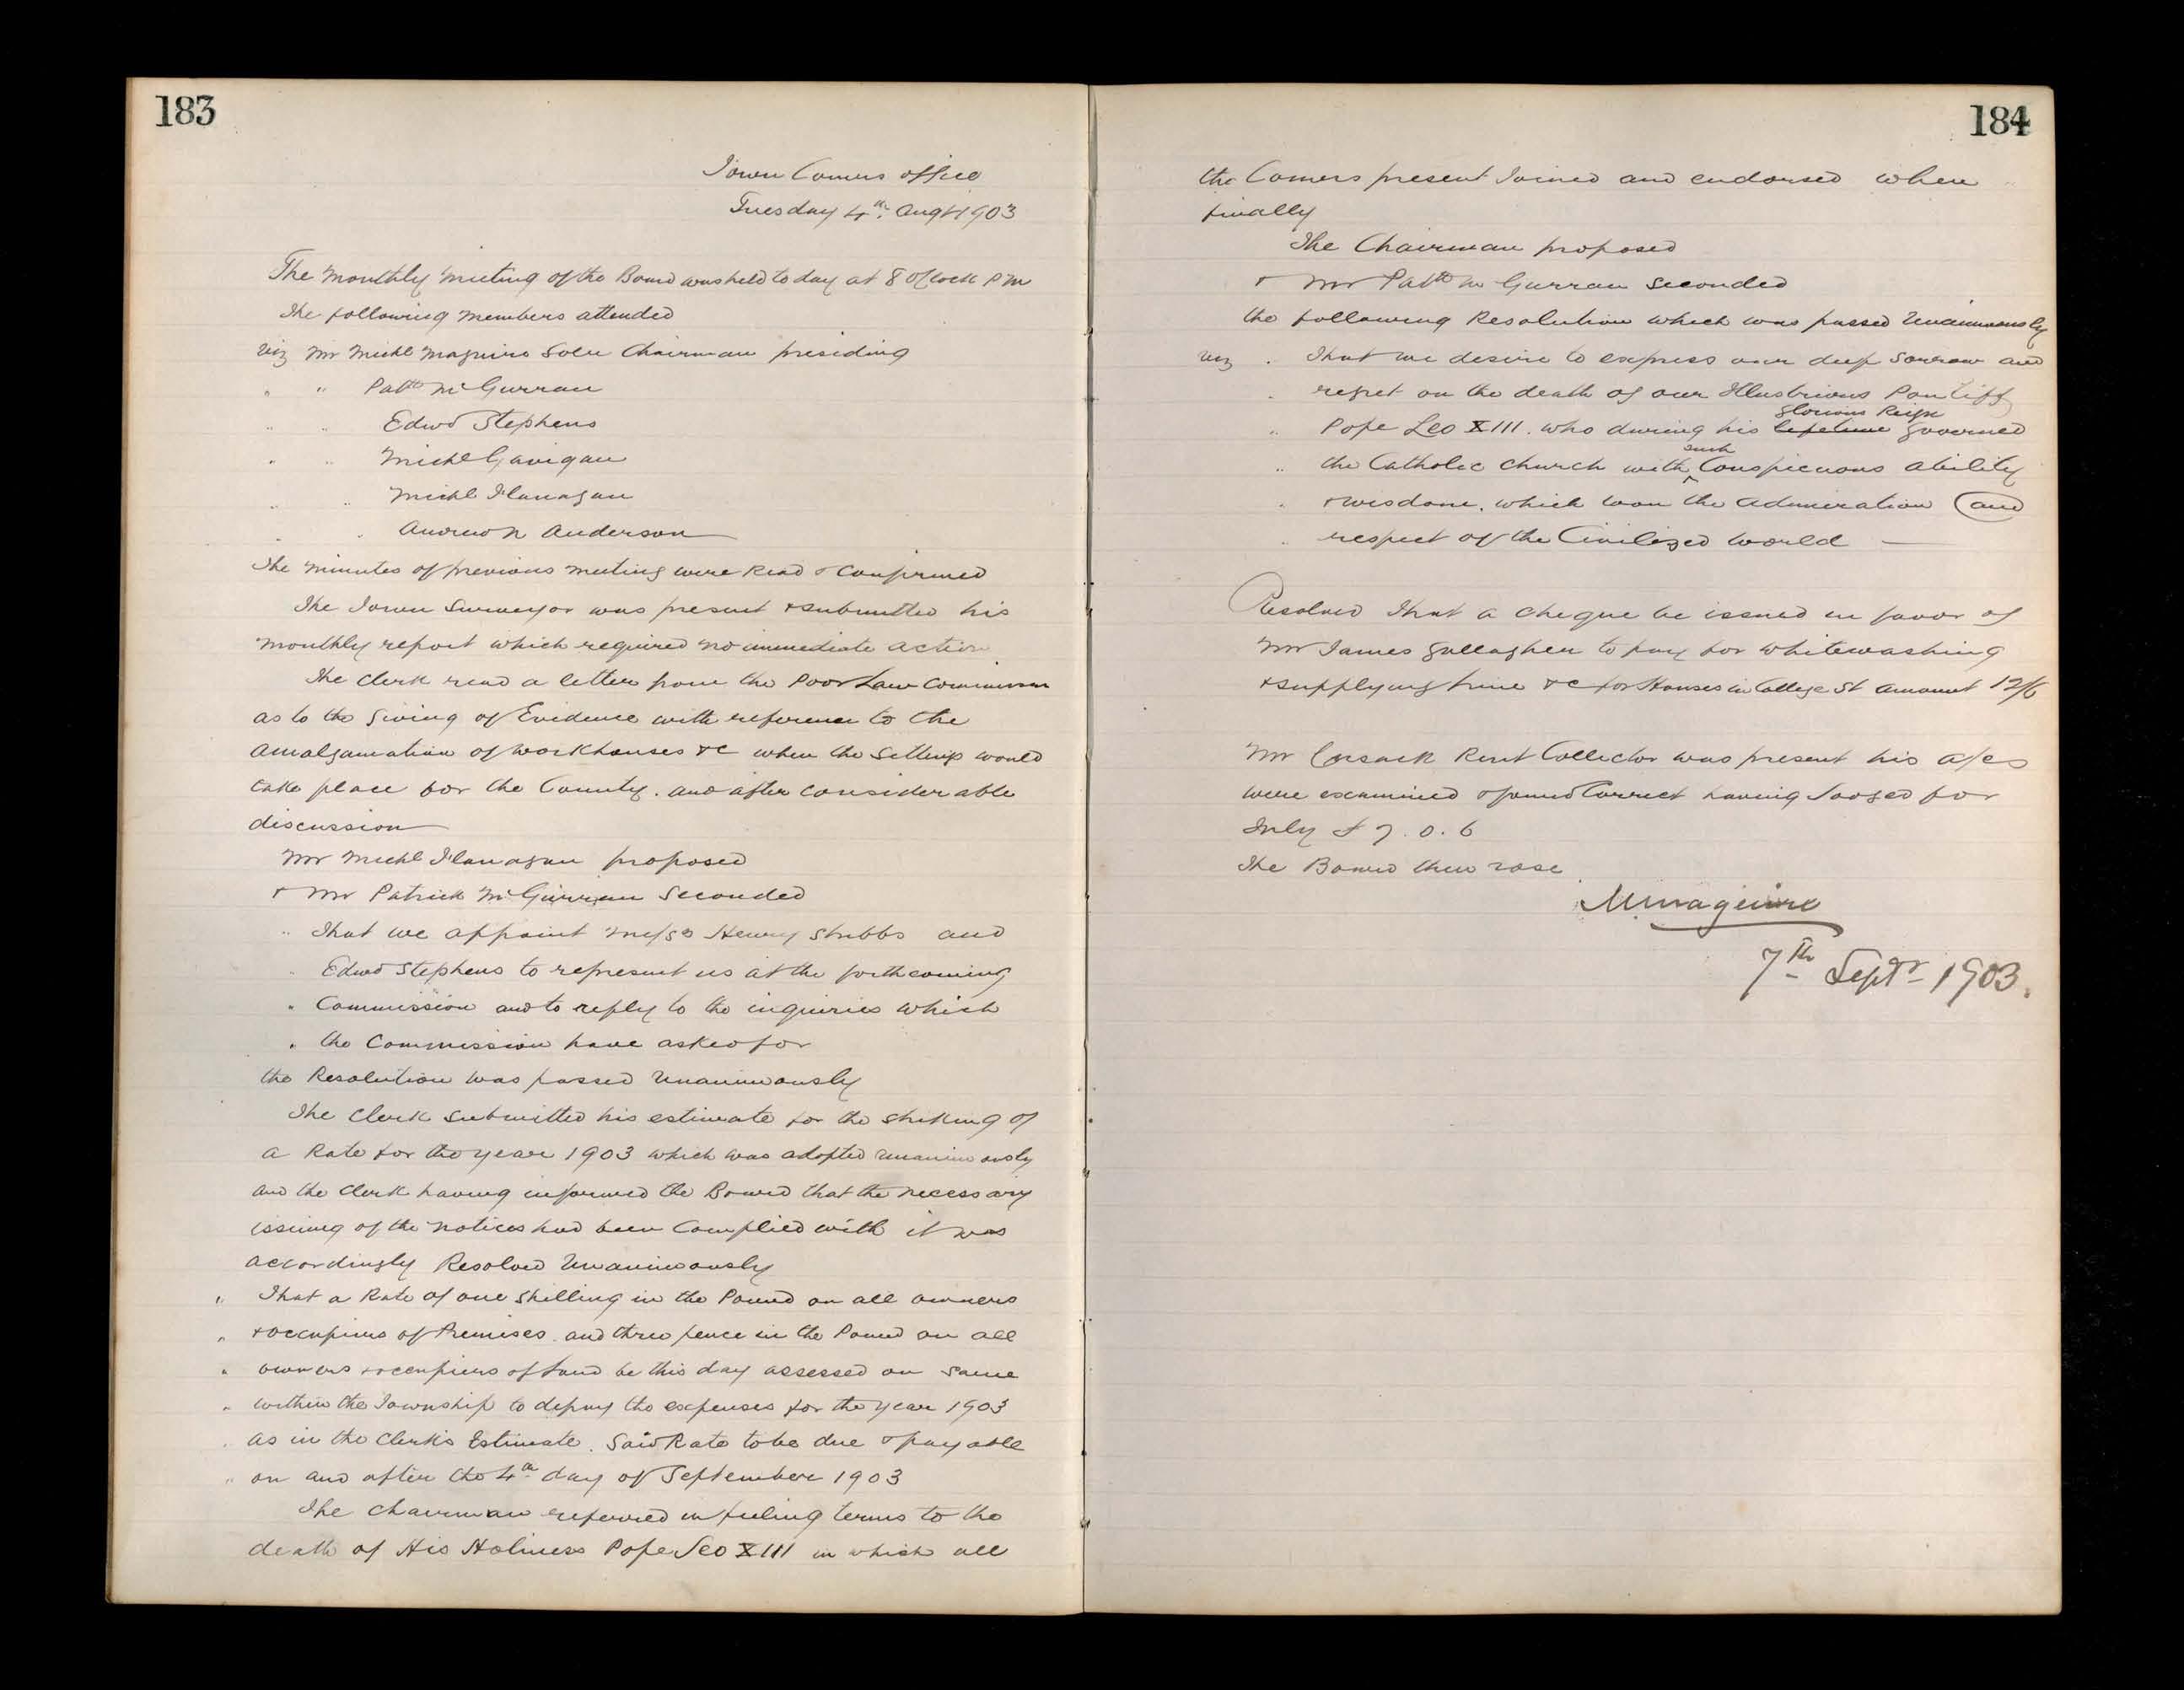 183
Town Comrs office
Tuesday 4th. Augt 1903
The Monthly Meeting of the Board was held to day at 8 O'Clock P M
The following Members attended
viz Mr Michl Maguire Solr Chairman presiding
" " Patk McGurran
" " Edwd Stephens
" " Michl Gavigan
" " Michl Flanagan
" " Andrew N Anderson
The Minutes of previous Meeting were Read & Confirmed
The Town Surveyor was present & submitted his
Monthly report which required no immediate action
The Clerk read a letter from the Poor Law Commission
as to the Giving of Evidence with reference to the
Amalgamation of Workhouses &c when the Sittings would
take place for the County. and after considerable
discussion
Mr Michl Flanagan proposed
& Mr Patrick McGurran Seconded
" That we appoint Messrs Henry Stubbs and
" Edwd Stephens to represent us at the forthcoming
" Commission and to reply to the inquiries which
" the Commission have asked for
the Resolution was passed Unanimously
The Clerk submitted his estimate for the Striking of
a Rate for the year 1903 which was adopted unanimously
and the Clerk having informed the Board that the necessary
issuing of the notices had been Complied with it was
accordingly Resolved Unanimously
" That a Rate of one Shilling in the Pound on all owners
" & occupiers of Premises and three pence in the Pound on all
" owners & occupiers of Land be this day assessed on Same
" within the Township to defray the expenses for the year 1903
" as in the Clerks Estimate. Said Rate to be due & payable
" on and after the 4th day of September 1903
The Chairman referred in feeling terms to the
death of His Holiness Pope Leo XIII in which all
184
the Comrs present Joined and endorsed when
finally
The Chairman proposed
& Mr Patk McGurran Seconded
the following Resolution which was passed Unanimously
viz " That we desire to express our deep Sorrow and
" regret on the death of our Illustrious Pontiff
glorious Reign
" Pope Leo XIII. who during his lifetime governed
such
" the Catholic Church with Conspicuous ability
" & wisdom. which won the admiration and
" respect of the Civilized World
Resolved That a Cheque be issued in favor of
Mr James Gallagher to pay for Whitewashing
& supplying Lime &c for Houses in College St amount 12/6
Mr Cusack Rent Collector was present his a/cs
were examined & found Correct having Lodged for
July £7.0.6
The Board then rose
MMaguire
7th Septr 1903.